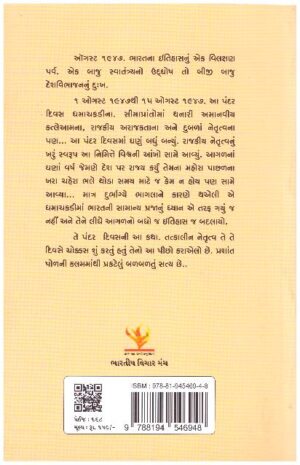 ઑગસ્ટ ૧૯૪૭. ભારતના ઇતિહાસનું એક વિલક્ષણ
પર્વ. એક બાજુ સ્વાતંત્ર્યનો ઉદ્ઘોષ તો બીજી બાજુ
દેશવિભાજનનું દુઃખ.
૧ ઑગસ્ટ ૧૯૪૭થી ૧૫ ઑગસ્ટ ૧૯૪૭. આ પંદર
દિવસ ધમાચકડીના. સીમાપ્રાંતોમાં થનારી અમાનવીય
કત્લેઆમના, રાજકીય અરાજકતાના અને દુબળાં નેતૃત્વના
પણ... આ પંદર દિવસમાં ઘણું બધું બન્યું. રાજકીય નેતૃત્વનું
ખરું સ્વરૂપ આ નિમિત્તે વિશ્વની આંખો સામે આવ્યું. આગળનાં
ઘણાં વર્ષ જેમણે દેશ પર રાજ્ય કર્યું તેમના મહોરા પાછળના
ખરા ચહેરા ભલે થોડા સમય માટે જ કેમ ન હોય પણ સામે
આવ્યા... માત્ર દુર્ભાગ્યે આગલાને કારણે થયેલી એ
ધમાચકડીમાં ભારતની સામાન્ય પ્રજાનું ધ્યાન એ તરફ ગયું જ
નહીં અને તેને લીધે આગળનો બધો જ ઇતિહાસ જ બદલાયો.
તે પંદર દિવસની આ કથા. તત્કાલીન નેતૃત્વ તે તે
દિવસે ચોક્કસ શું કરતું હતું તેનો આ પીછો કરાએલો છે. પ્રશાંત
પોળની કલમમાંથી પ્રકટેલું બળબળતું સત્ય છે..
ભારતીય વિચાર મંચ
ISBN : 978-81-945469-4-8
પેજ : ૧૬૮
મૂલ્ય : રૂા. ૧૫૦/-
9 788194 546948